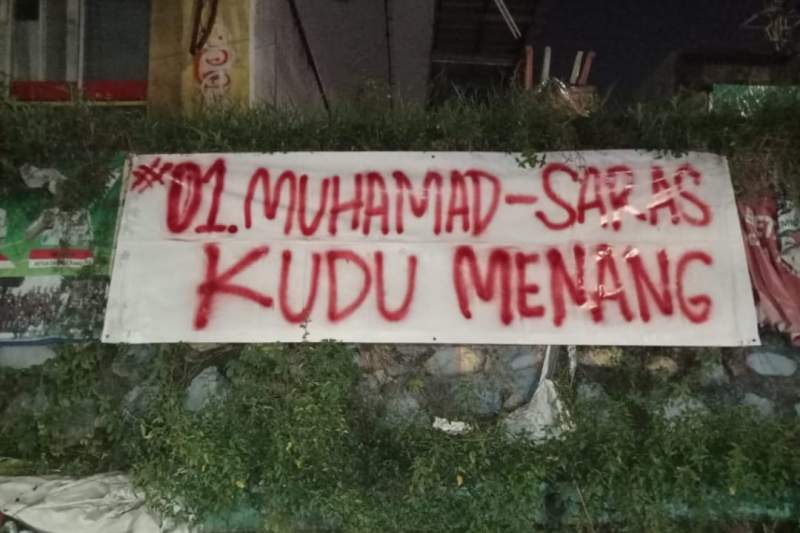 #01. MUHAMAD-SARAS
KUDU MENANG